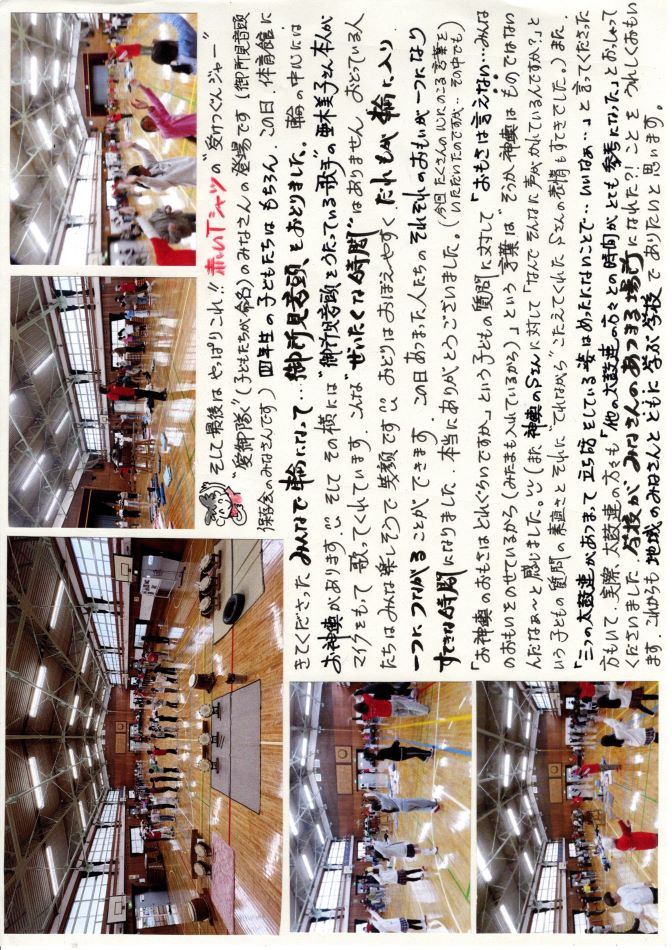 そして最後は やっぱりこれ!! 赤いTシャツの"受けつぐんジャー"
"愛御隊"(子どもたちが命名)のみなさんの登場です(御所見音頭
保存会のみなさんです) 四年生の子どもたちは もちろん、この日、体育館に
きてくださった みんなで 輪になって… 御所見音頭 をおどりました。輪の中心には
お神輿があります。そして その横には"御所見音頭をうたっている歌手"の 亜木美子さん本人が
マイクをもって 歌ってくれています。こんな"ぜいたくな時間"はありません おどっている人
たちはみんな楽しそうで 笑顔です おどりはおぼえやすく だれもが 輪に入り
一つにつながる ことができます。この日 あつまった人たちの それぞれのおもいが一つになり
すてきな時間になりました。本当にありがとうございました。(今日 たくさんの 心にのこる言葉を
いただいたのですが… その中でも)
「お神輿のおもさはどれぐらいですか」という子どもの質問に対して「おもさは言えない…みんな
のおもいをのせているから(みたまも入れているから)」という言葉は"そうか、神輿は ものではない
んだなぁ〜と感じました。(また 神輿のSさんに対して「なんで そんなに声が、かれているんですか?」と
いう子どもの質問の素直さと それに"てれながら"こたえてくれたSさんの表情もすてきでした。) また、
「三つの太鼓連があつまって 立ち話をしている姿は めったにないことで…いいなぁ…」と言ってくださった
方もいて 実際、太鼓連の方々も「他の太鼓連の方々との時間が とても参考になった」とおっしゃって
くださいました。学校が みなさんのあつまる場所 になれた?!ことを うれしくおもい
ます。これからも 地域のみなさんと ともに学ぶ学校 でありたいと思います。